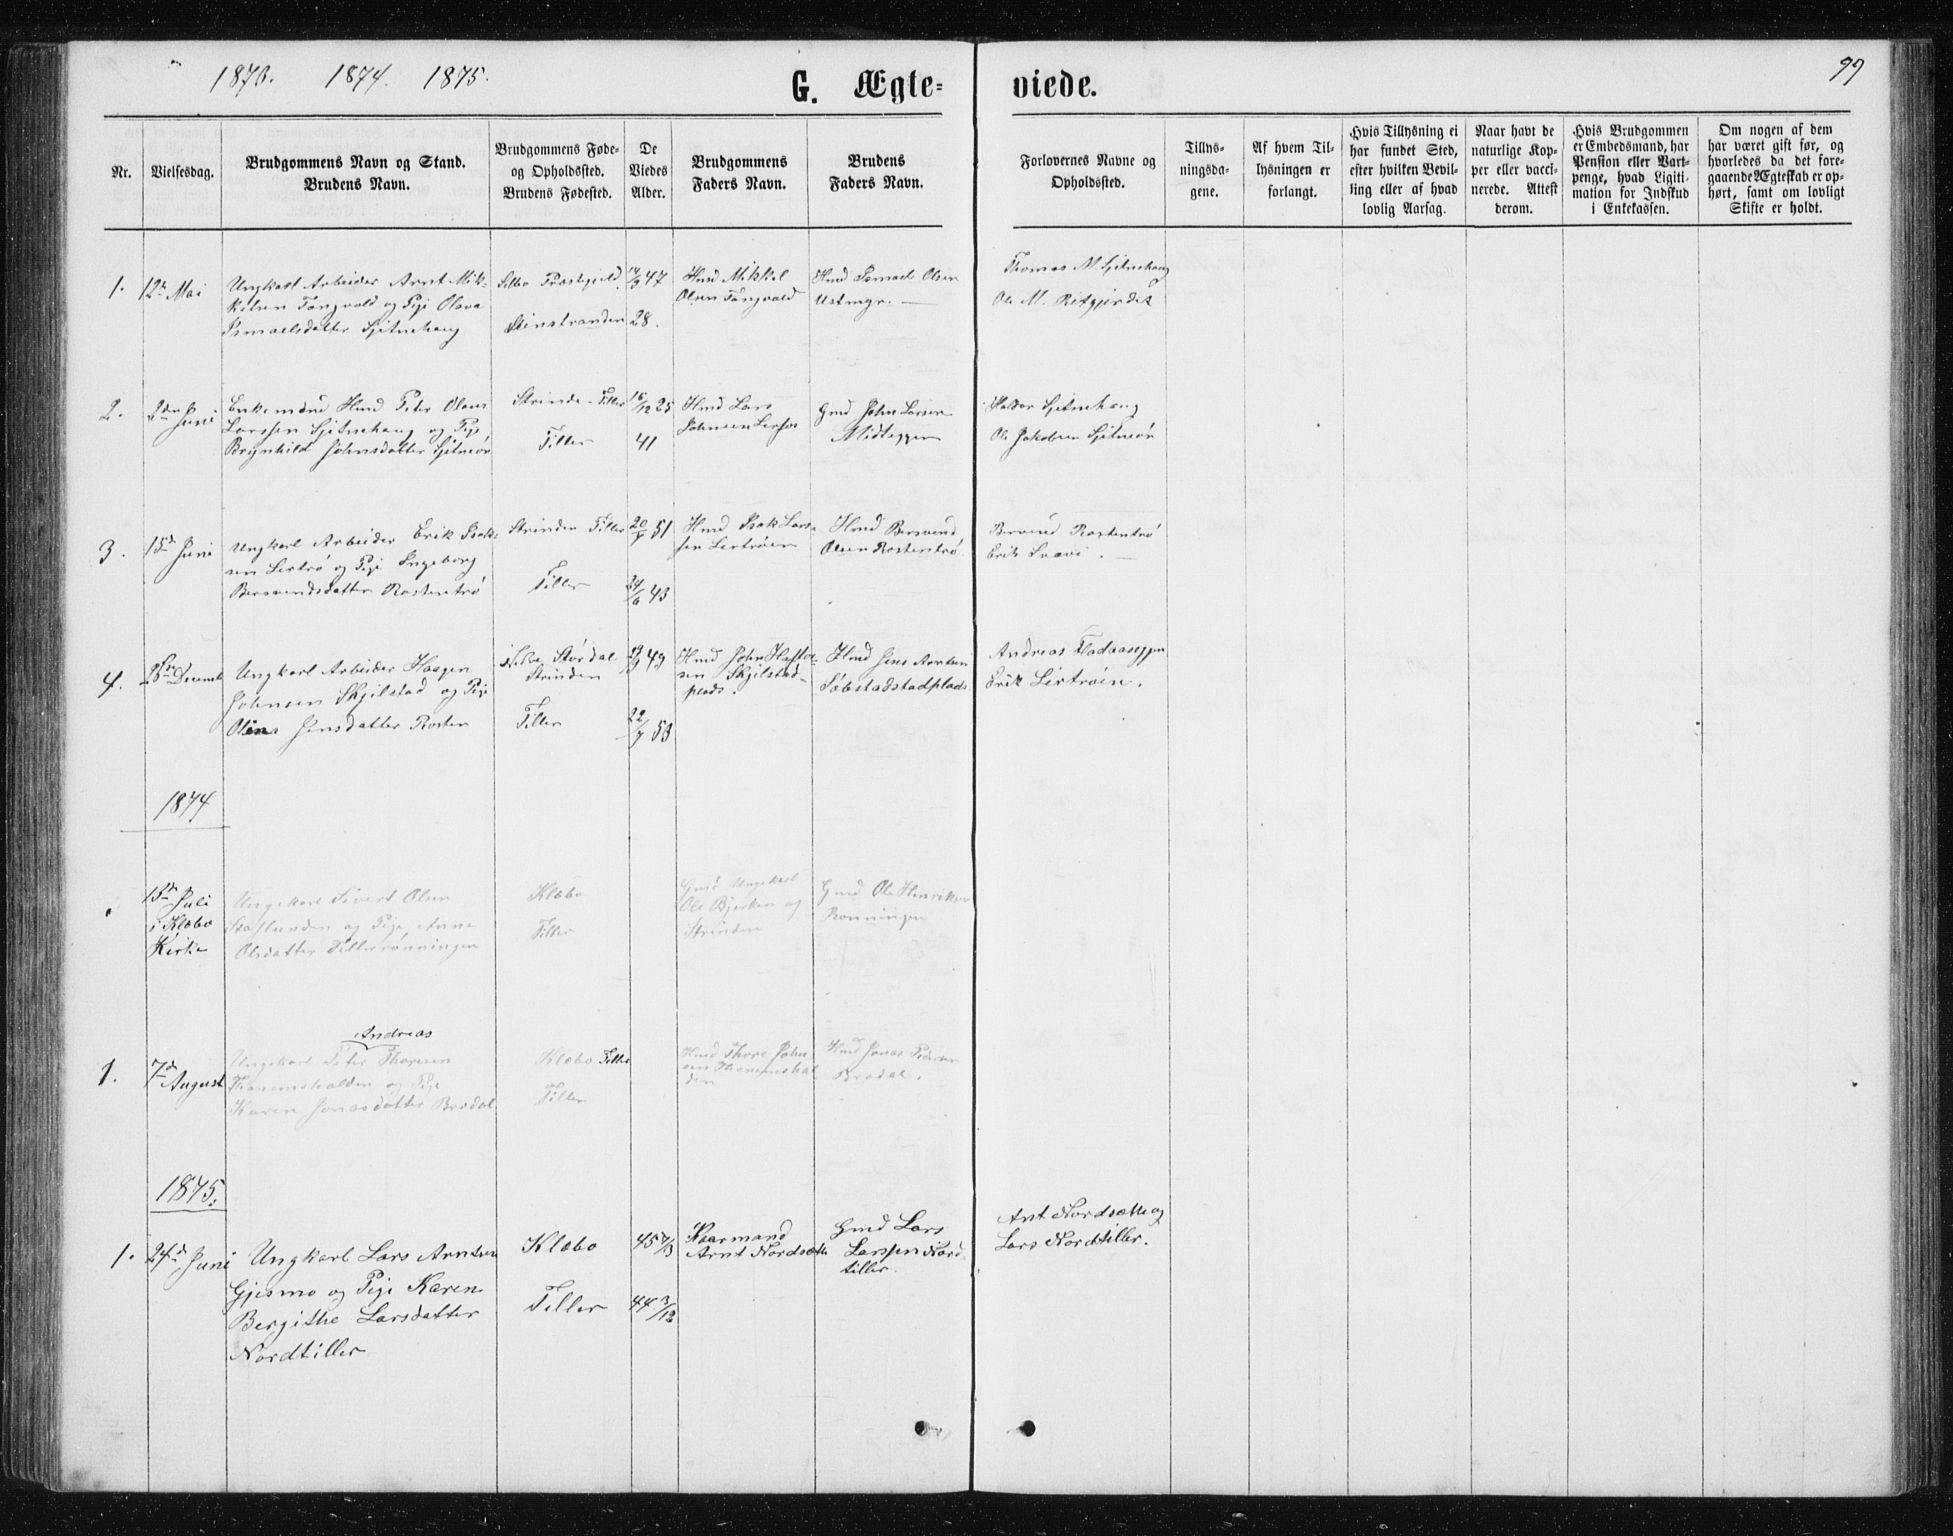 1873. 1874. 1875.
G. Ægte-
viede.
99
Nr.
Vielsesdag.
Brudgommens Navn og Stand.
Brudens Navn.
Brudgommens Føde-
og Opholdssted.
Brudens Fødested.
De
Viedes
Alder.
Brudgommens
Faders Navn.
Brudens
Faders Navn.
Forlovernes Navne og
Opholdssted.
Tillys-
ningsda-
gene.
Af hvem Til-
lysningen er
forlangt.
Hvis Tillysning ei
har fundet Sted,
efter hvilken Bevil-
ling eller af hvad
lovlig Aarsag.
Naar havt de
naturlige Kop-
per eller vacci-
nerede. Attest
derom.
Hvis Brudgommen
er Embedsmand, har
Pension eller Vart-
penge, hvad Ligiti-
mation for Indskud
i Enkekassen.
Om nogen af dem
har været gift før, og
hvorledes da det fore-
gaaende Ægteskab er op-
hørt, samt om lovligt
Skifte er holdt.
1.
12te Mai
Ungkarl Arbeider Arnt Mik-
kelsen Tangvald og Pige Olava
Ismaelsdatter Sjetnehaug
Selbo Præstegjeld
Leinstranden
47
28.
Hmd Mikkel
Olsen Tangvald
Hmd Ismael Olsen
Ustmyr.
Thomas M. Sjetnehaug
Ole M. Ritgjerdet
2.
2den Juni
Enkemand Hmd Peter Olaus
Larssen Sjetnehaug og Pige
Brynhild Johnsdatter Sjetneør
Strinde - Tiller
Tiller
16/12 25
41
Hmd Lars
Johnsen Lerfos
Gmd John Larsen
Midteggen
Haldor Sjetnehaug
Ole Jakobsen Sjetneør
3.
15de Juni
Ungkarl Arbeider Erik Isak-
sen Lertrø og Pige Ingeborg
Bersvendsdatter Rostentrø
Strinden Tiller
Tiller
20/7 51
24/6 43
Hmd Isak Lars-
sen Lertrøen
Hmd Bersvend
Olsen Rostentrø
Bersvend Rostentrø
Erik
4.
28de Decemb
Ungkarl Arbeider Haagen
Johnsen Skjelstad og Pige
Oline Jensdatter Rosten
Størdal
Strinden
Tiller
49
22/7 53
Hmd John
sen Skjelstad-
plads.
Hmd Jens Arntsen
Søbstadstadplads
Andreas Flodaaseggen
Erik Lertrøen.
1874
15de Juli
i Klæbo
Kirke
Ungekarl Sivert Olsen
og Pige Anne
Olsdatter Tillerrønningen
Klæbo
Tiller
Gmd Ungekarl
Ole Bjerken og
Strinden
Gmd Ole Henriksen
Rønningen
1.
7de August
Andreas
Ungekarl Peter Thoresen
Thanemshalden og Pige
Karen Jonasdatter Brødal
Klæbo Tiller
Tiller
Hmd Thore John
sen Thanemshal
den
Hmd Jonas Pedersen
Brødal.
1875.
1.
24de Juni
Ungkarl Lars Arntsen
Gjesmo og Pige Karen
Bergithe Larsdatter
Nordtiller
Klæbo
Tiller
45 7/3
44 3/12
Kaarmand
Arnt Nordsætte
Gmd Lars
Larssen Nord-
tiller.
Arnt Nordsætte og
Lars Nordtiller.